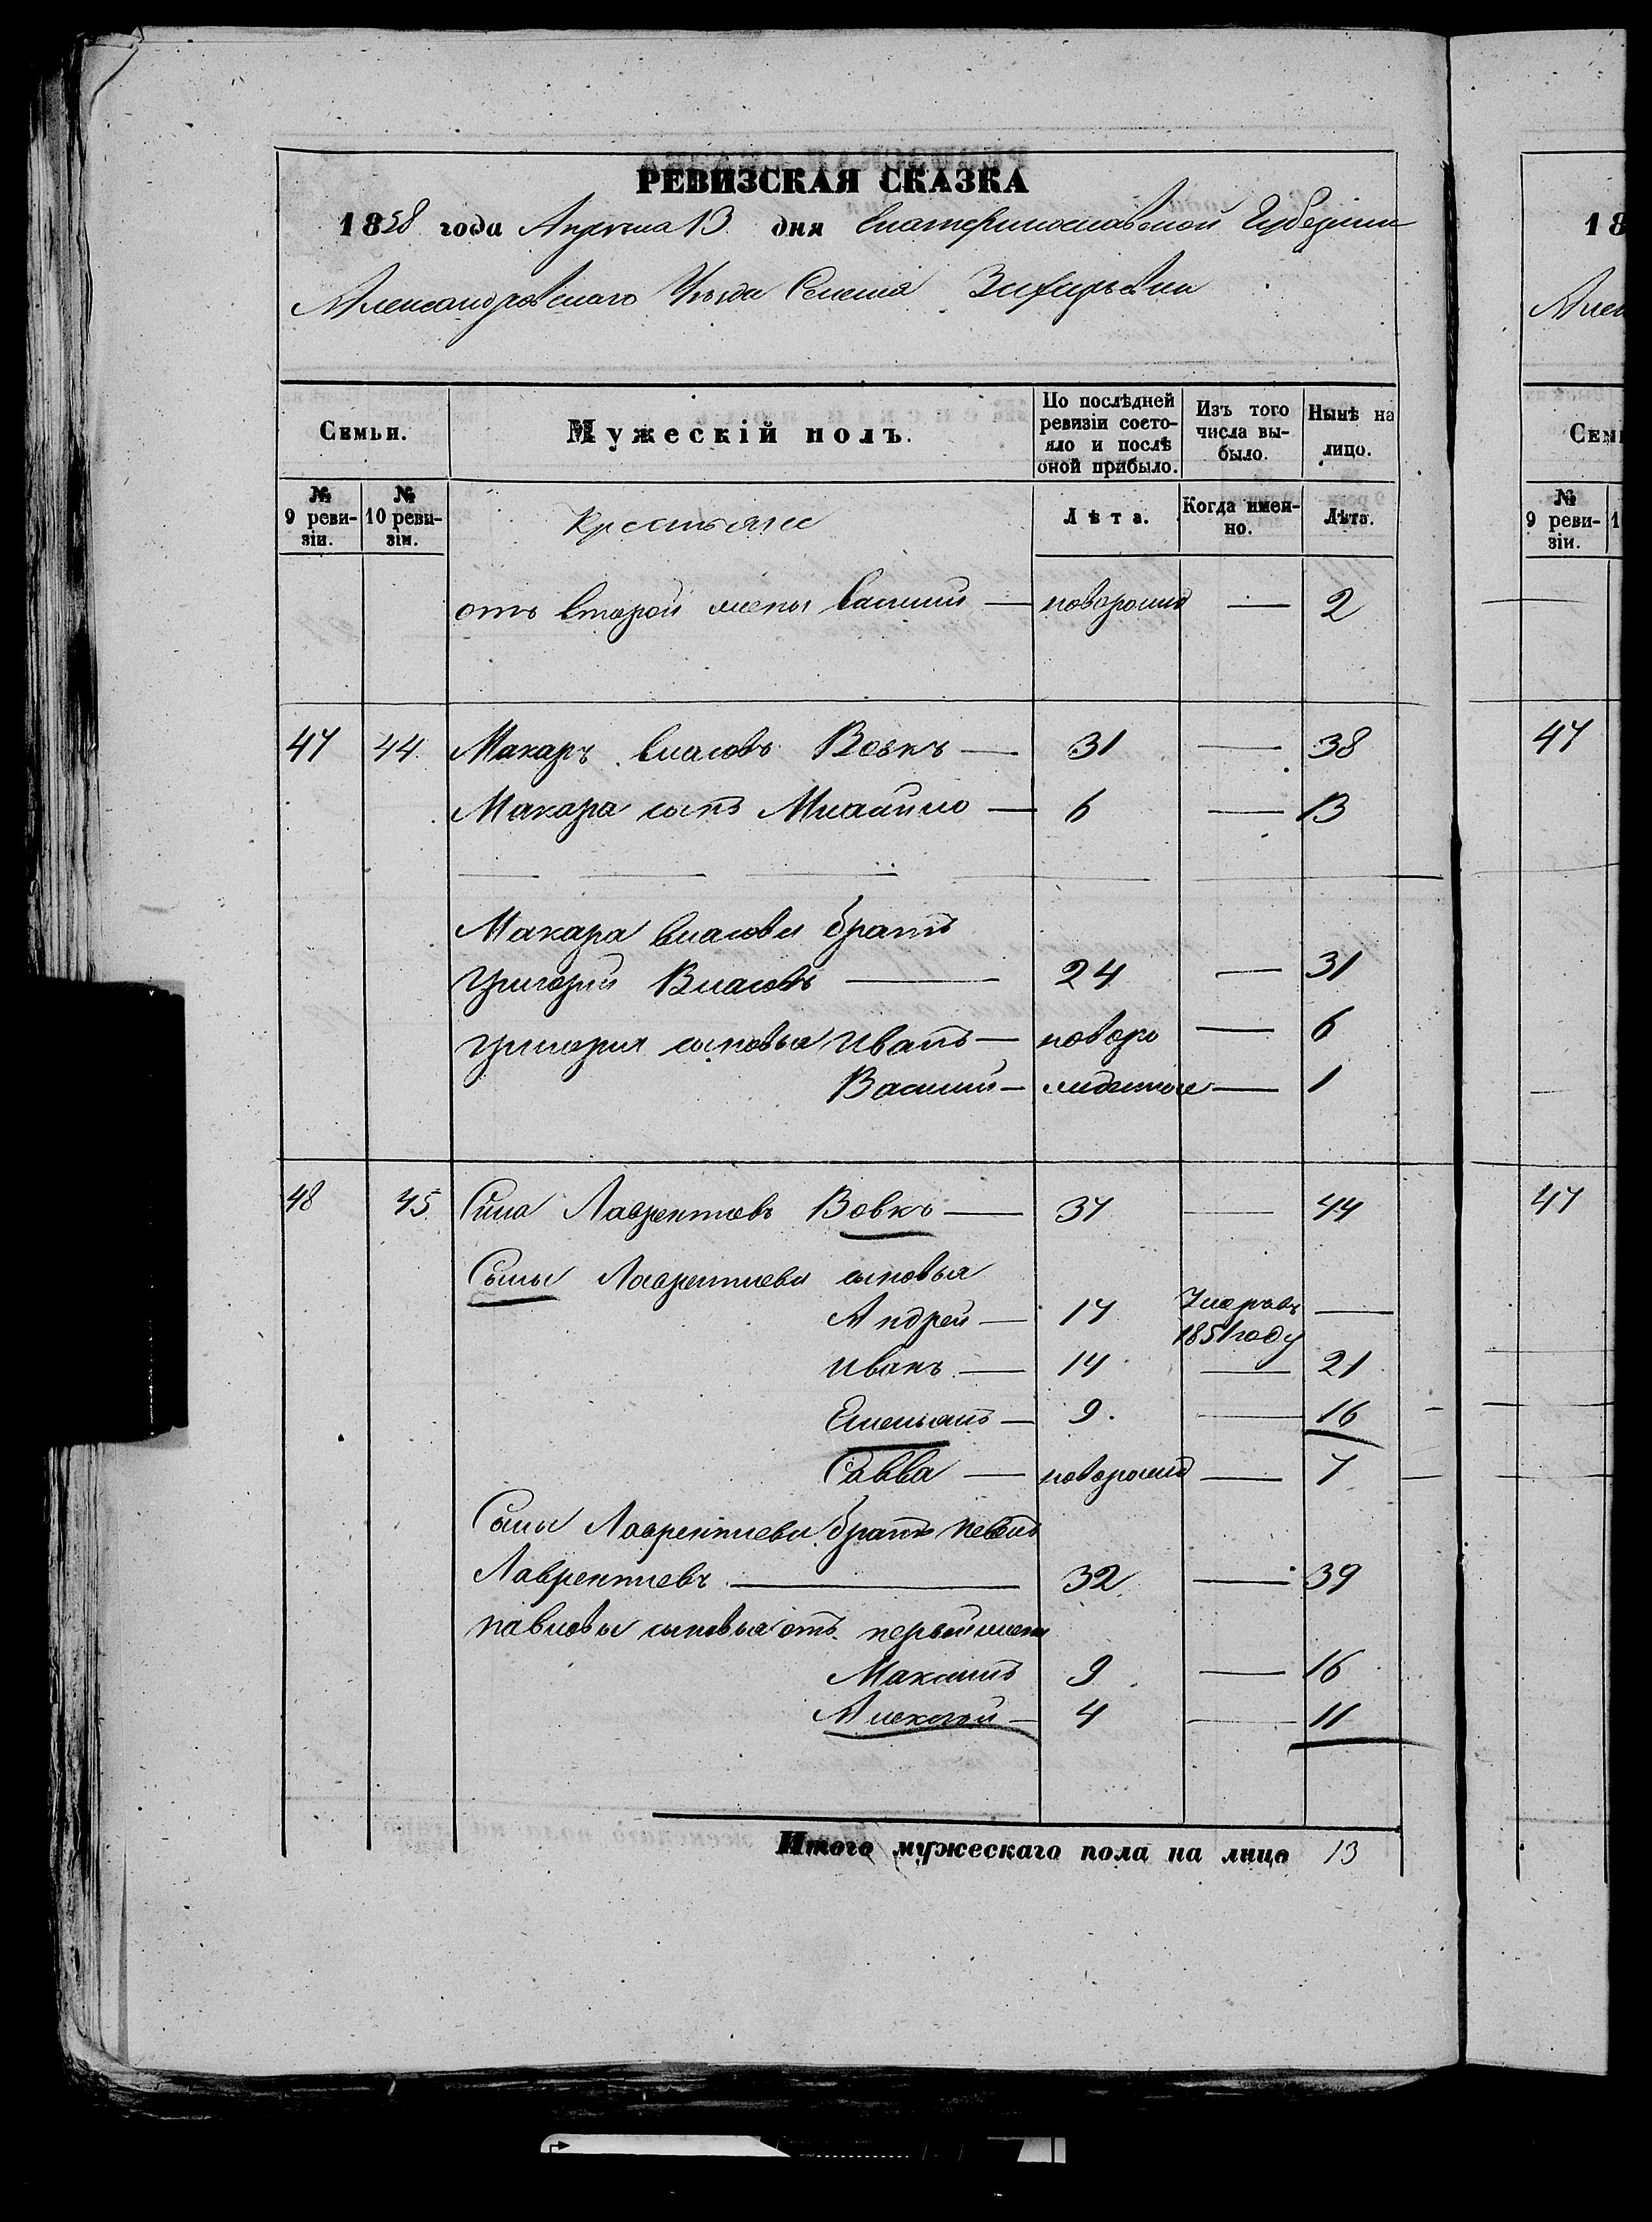 РЕВИЗСКАЯ СКАЗКА
1858 года Апреля 13 дня Екатеринославской Губерніи
Александровскаго Уѣзда Селенія
Семьи. Мужескій полъ. По послѣдней ревизіи состояло и послѣ оной прибыло. Изъ того числа выбыло. Нынѣ на лицо.
№ 9 ревизіи. № 10 ревизіи. Крестьяне Лѣта. Когда именно. Лѣта.
отъ второй жены Василий — новорожд — 2
47 44 Макаръ Власовъ Вовкъ — 31 — 38
Макара сынъ Михайло — 6 — 13
Макара Власова братъ
Григорий Власовъ — 24 — 31
Григория сыновья Иванъ — новоро — 6
Василий — — 1
48 45 Сила Лаврентовъ Вовкъ — 37 — 44
Силы Лаврентиева сыновья
Андрей — 17 Умеръ въ 1851 году —
Иванъ — 14 — 21
Емельянъ — 9. — 16
Савва — новорожд — 7
Силы Лаврентиева братъ Павелъ
Лаврентиевъ — 32 — 39
Павловы сыновья отъ первой жены
Максимъ 9 — 16
Алексѣй — 4 — 11
Итого мужескаго пола на лицо 13
18
Алек
Семь
№ 9 ревизіи. 1
47
47